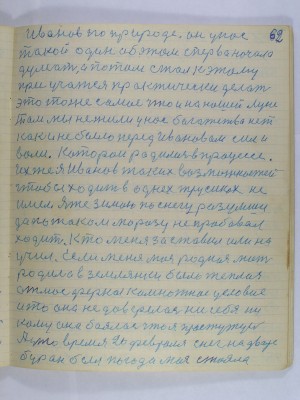 62
Иванов по природе. он у нас
такой один об этом сперва начали
думать, а потом стал к этому
приучатся практически делат
это тоже самое что и на нашей луне
там мы не нашли у нас богатства нет
как и не было перед Ивановым сил и
воли. Которои родилися в процессе.
Иванов таких возможностей
чтобы ходить в одних трусиках не
имел Я же зимою по снегу разумши
да по такому морозу не пробовал
ходит. Кто меня заставил или на
учил. Если меня моя родная мат
родила в землянки было теплая
атмосферная комнатное условие
и то она не доверялас ни себя ни
кому она боялас что я простужус
А это время 20 февраля снег на дворе
буран был погода моя стояла